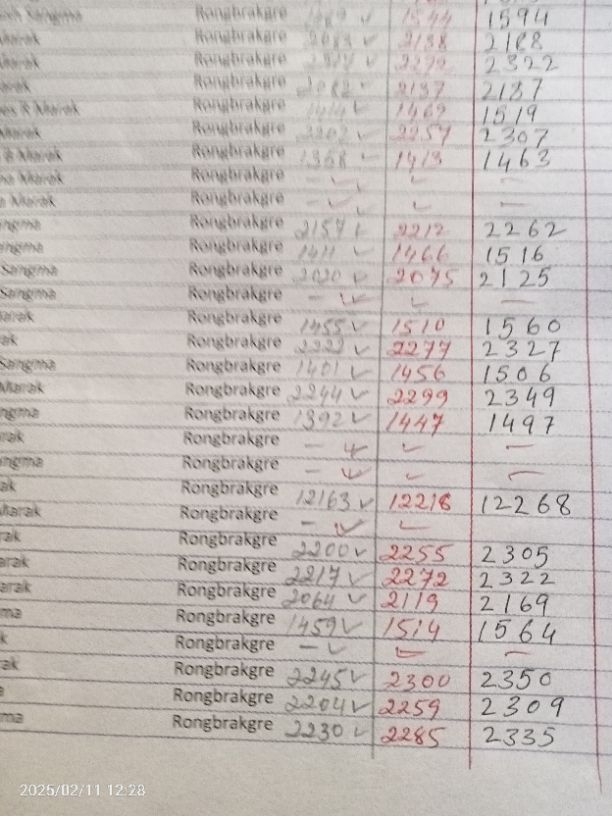 Sangma Rongbrakgre 1544 1594
Marak Rongbrakgre 2138 2188
Marak Rongbrakgre 2322
arak Rongbrakgre 2082 ✓ 2137 2187
es R Marak Rongbrakgre 1414 ✓ 1469 1519
Marak Rongbrakgre 2202 ✓ 2257 2307
Marak Rongbrakgre 1368 ✓ 1413 1463
Marak Rongbrakgre – ✓ ✓ –
Marak Rongbrakgre – ✓ ✓ –
ngma Rongbrakgre 2157 ✓ 2212 2262
ngma Rongbrakgre 1411 ✓ 1466 1516
Sangma Rongbrakgre 2020 ✓ 2075 2125
Sangma Rongbrakgre – ✓ ✓ –
arak Rongbrakgre 1455 ✓ 1510 1560
ak Rongbrakgre 2222 ✓ 2277 2327
Sangma Rongbrakgre 1401 ✓ 1456 1506
Marak Rongbrakgre 2244 ✓ 2299 2349
ngma Rongbrakgre 1392 ✓ 1447 1497
rak Rongbrakgre – ✓ ✓ –
ngma Rongbrakgre – ✓ ✓ –
ak Rongbrakgre 12163 ✓ 12218 12268
Marak Rongbrakgre – ✓ ✓
rak Rongbrakgre 2200 ✓ 2255 2305
arak Rongbrakgre 2217 ✓ 2272 2322
arak Rongbrakgre 2064 ✓ 2119 2169
ma Rongbrakgre 1459 ✓ 1514 1564
k Rongbrakgre – ✓ ✓ –
ak Rongbrakgre 2245 ✓ 2300 2350
a Rongbrakgre 2204 ✓ 2259 2309
ma Rongbrakgre 2230 ✓ 2285 2335
2025/02/11 12:28